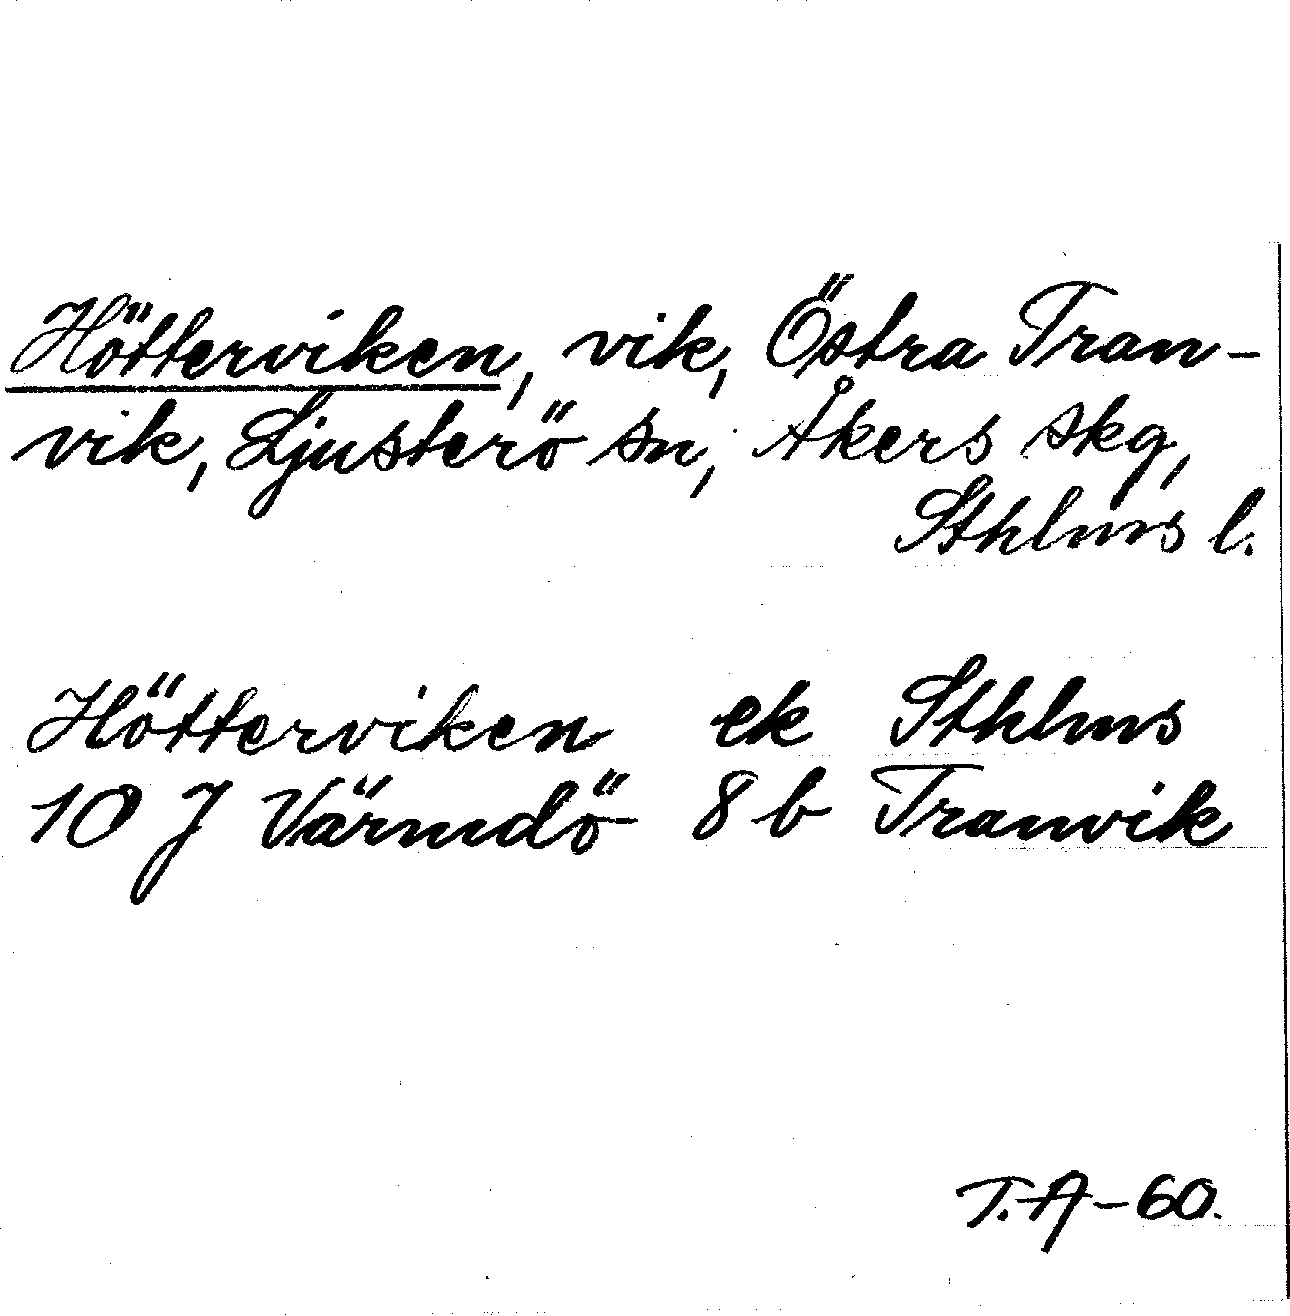 Hötterviken, vik, Östra Tran-
vik, Ljusterö sn, Åkers skg,
Sthlms l.
Hötterviken ek Sthlms
10 J Värmdö 8 b Tranvik
T.A-60.